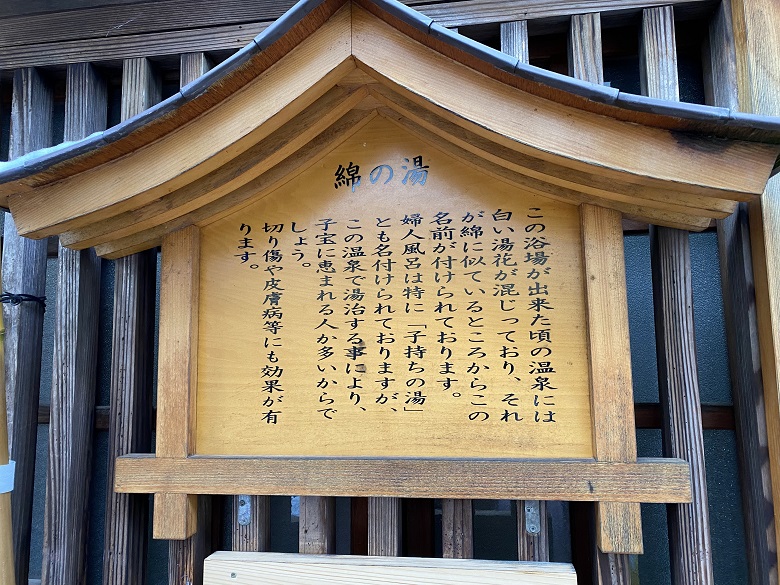 綿の湯
この浴場が出来た頃の温泉には
白い湯花が混じっており、それ
が綿に似ているところからこの
名前が付けられております。
婦人風呂は特に「子持ちの湯」
とも名付けられておりますが、
この温泉で湯治する事により、
子宝に恵まれる人か多いからで
しょう。
切り傷や皮膚病等にも効果が有
ります。